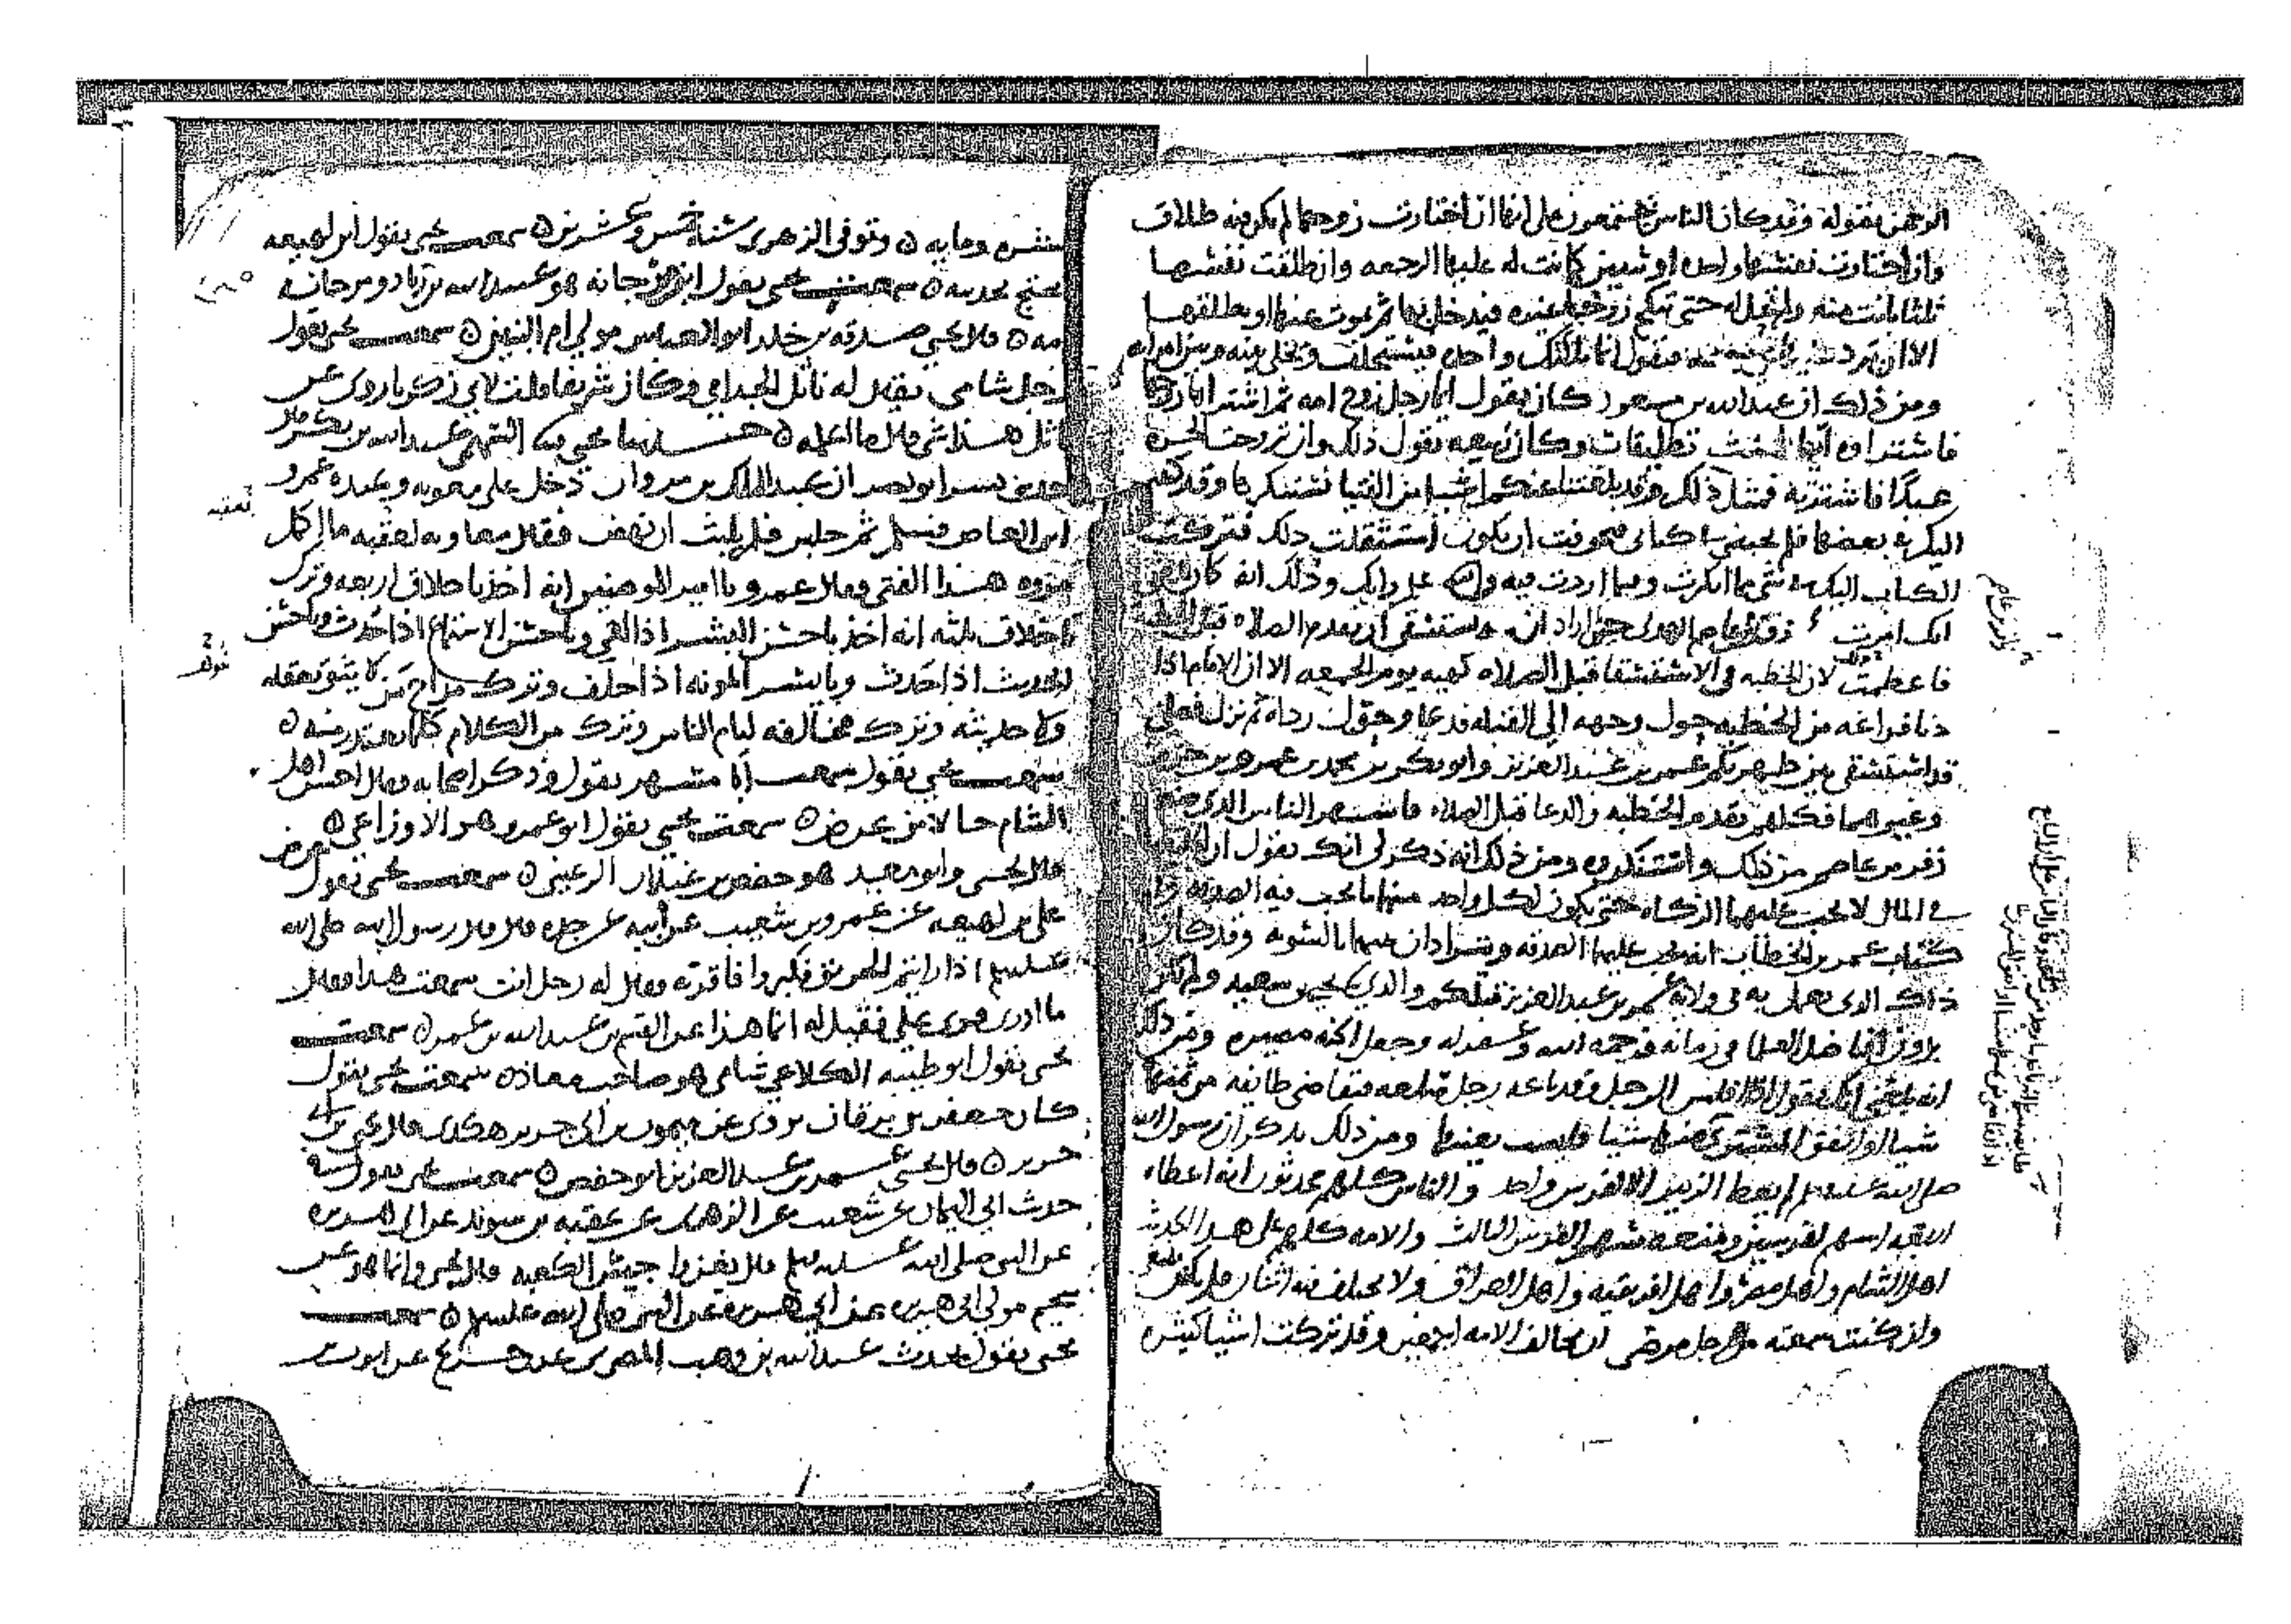 الرحمن بقوله وقد كان الناس مجتمعون على انها ان اختارت زوجها لم يكن فيه طلاق
وان اختارت نفسها واحده او ثنتين كانت له عليها الرجعه وان طلقت نفسها
ثلثا بانت منه ولم تحل له حتى تنكح زوجا غيره فيدخل بها ثم يموت عنها او يطلقها
الا ان يرد عليها في مجلسه فيقول انما ملكتك واحده فيستحلف ويخلى بينه وبين امراته
ومن ذلك ان عبد الله بن مسعود كان يقول ايما رجل تزوج امه ثم اشتراها زوجها
فاشتراوه اياها ثلث تطليقات وكان ربيعه يقول ذلك وان تزوجت الحره
عبدا فاشترته فمثل ذلك وقد بلغنا عنكم اشيا من الفتيا مستنكرها وقد كتبت
اليك في بعضها فلم تجبني في كتابي فتخوفت ان يكون استثقلت ذلك فتركت
الكتاب اليك في شي مما انكرت وفيما اردت فيه علم رايك وذلك انه
انك امرت زفر بن عاصم الهلالي حين اراد ان يستسقي ان يقدم الصلاه قبل الخطبه
فاعظمت ذلك لان الخطبه في الاستسقا قبل الصلاه كهيه يوم الجمعه الا ان الامام اذا
دنا فراغه من الخطبه حول وجهه الى القبله فدعا وحول رداه ثم نزل فصلى
قد استسقى بين ظهريكم عمر بن عبد العزيز وابو بكر بن محمد بن عمرو بن حزم
وغيرهما فكلهم يقدم الخطبه والدعا قبل الصلاه فاستهتر الناس الذي صنع
زفر بن عاصم من ذلك واستنكروه ومن ذلك انه ذكر لي انك تقول ان الخليطين
في المال لا تجب عليهما الزكاه حتى يكون لكل واحد منهما ما تجب فيه الصدقه وفي
كتاب عمر بن الخطاب انه تجب عليهما الصدقه ويترادان بينهما بالسويه وقد كان
ذلك الذي يعمل به في ولايه عمر بن عبد العزيز قبلكم والذي حدثنا يحيى بن سعيد ولم يكن
بدون افاضل العلما في زمانه فرحمه الله وغفر له وجعل الجنه مصيره ومن ذلك
انه بلغني انك تقول اذا افلس الرجل وقد باعه رجل سلعه فتقاضى طايفه من ثمنها
شيا او انفق المشتري منها شيا فليست بعينها ومن ذلك يذكر ان رسول الله
صلى الله عليه وسلم لم يعط الزبير الا لفرس واحد والناس كلهم يحدثون انه اعطاه
اربعه اسهم لفرسين ومنعه سهم الفرس الثالث والامه كلهم على هذا الحديث
اهل الشام واهل مصر واهل افريقيه واهل العراق ولا يختلف فيه اثنان فلم يكن ينبغي
وان كنت سمعته من رجل مرضي ان تخالف الامه اجمعين وقد تركت اشيا كثيره
عشره ومايه ه وتوفي الزهري سنه خمس وعشرين ه سمعت يحيى يقول ابن لهيعه
يحتج بحديثه ه سمعت يحيى يقول ابن مرجانه هو عبيد الله بن زياد ومرجانه
امه ه قال يحيى صدقه بن خلد ابو العباس مولى ام البنين ه سمعت يحيى يقول
رجل شامي يقال له ناتل الجذامي وكان شريفا قلت لابي زكريا روى عن
ناتل هذا شي قال ما اعلمه ه حدثنا يحيى السهمي عبد الله بن بكر قال
حدثني بشر ابو نصر ان عبد الملك بن مروان دخل على معويه وعنده عمرو
ابن العاص فسلم ثم جلس فلم يلبث ان نهض فقال معاويه لعقبه ما اكمل
مروه هذا الفتى وقال عمرو يا امير المومنين انه اخذ باخلاق اربعه وترك
اخلاق ثلثه انه اخذ باحسن البشر اذا لقي وباحسن الاستماع اذا حدث وباحسن
الحديث اذا حدث وبايسر المونه اذا حلف وترك مزاح من لا يثق بعقله
ولا دينه وترك مخالفه ليام الناس وترك من الكلام كلما يعتذر منه ه
سمعت يحيى يقول سمعت ابا مسهر يقول وذكر اصحابه فقال احسن اهل
الشام حالا من عرض ه سمعت يحيى يقول ابو عمرو هو الاوزاعي ه
قال يحيى وابو معيد هو حفص بن غيلان الرعيني ه سمعت يحيى يقول
على بن لهيعه عن عمرو بن شعيب عن ابيه عن جده قال قال رسول الله صلى الله
عليه وسلم اذا رايتم الحريق فكبروا فاقرته فقال له رجل انت سمعت هذا فقال
ما ادري هو علي فقيل له انما هذا عن القسم بن عبد الله بن عمر ه سمعت
يحيى يقول ابو طيبه الكلاعي شامي هو صاحب معاذ ه سمعت يحيى يقول
كان جعفر بن برقان يروي عن ميمون بن ابي جرير هكذى قال يحيى بن ابي
جرير ه قال يحيى عمر بن عبد العزيز ابو حفص ه سمعت يحيى يقول في
حديث ابي اليمان عن شعيب عن الزهري عن عقبه بن سويد عن ابي هريره
عن النبي صلى الله عليه وسلم قال يغزوا جيش الكعبه قال يحيى وانما هو عن
سحيم مولى ابي هريره عن ابي هريره عن النبي صلى الله عليه وسلم ه سمعت
يحيى يقول حديث عبد الله بن وهب المصري عن